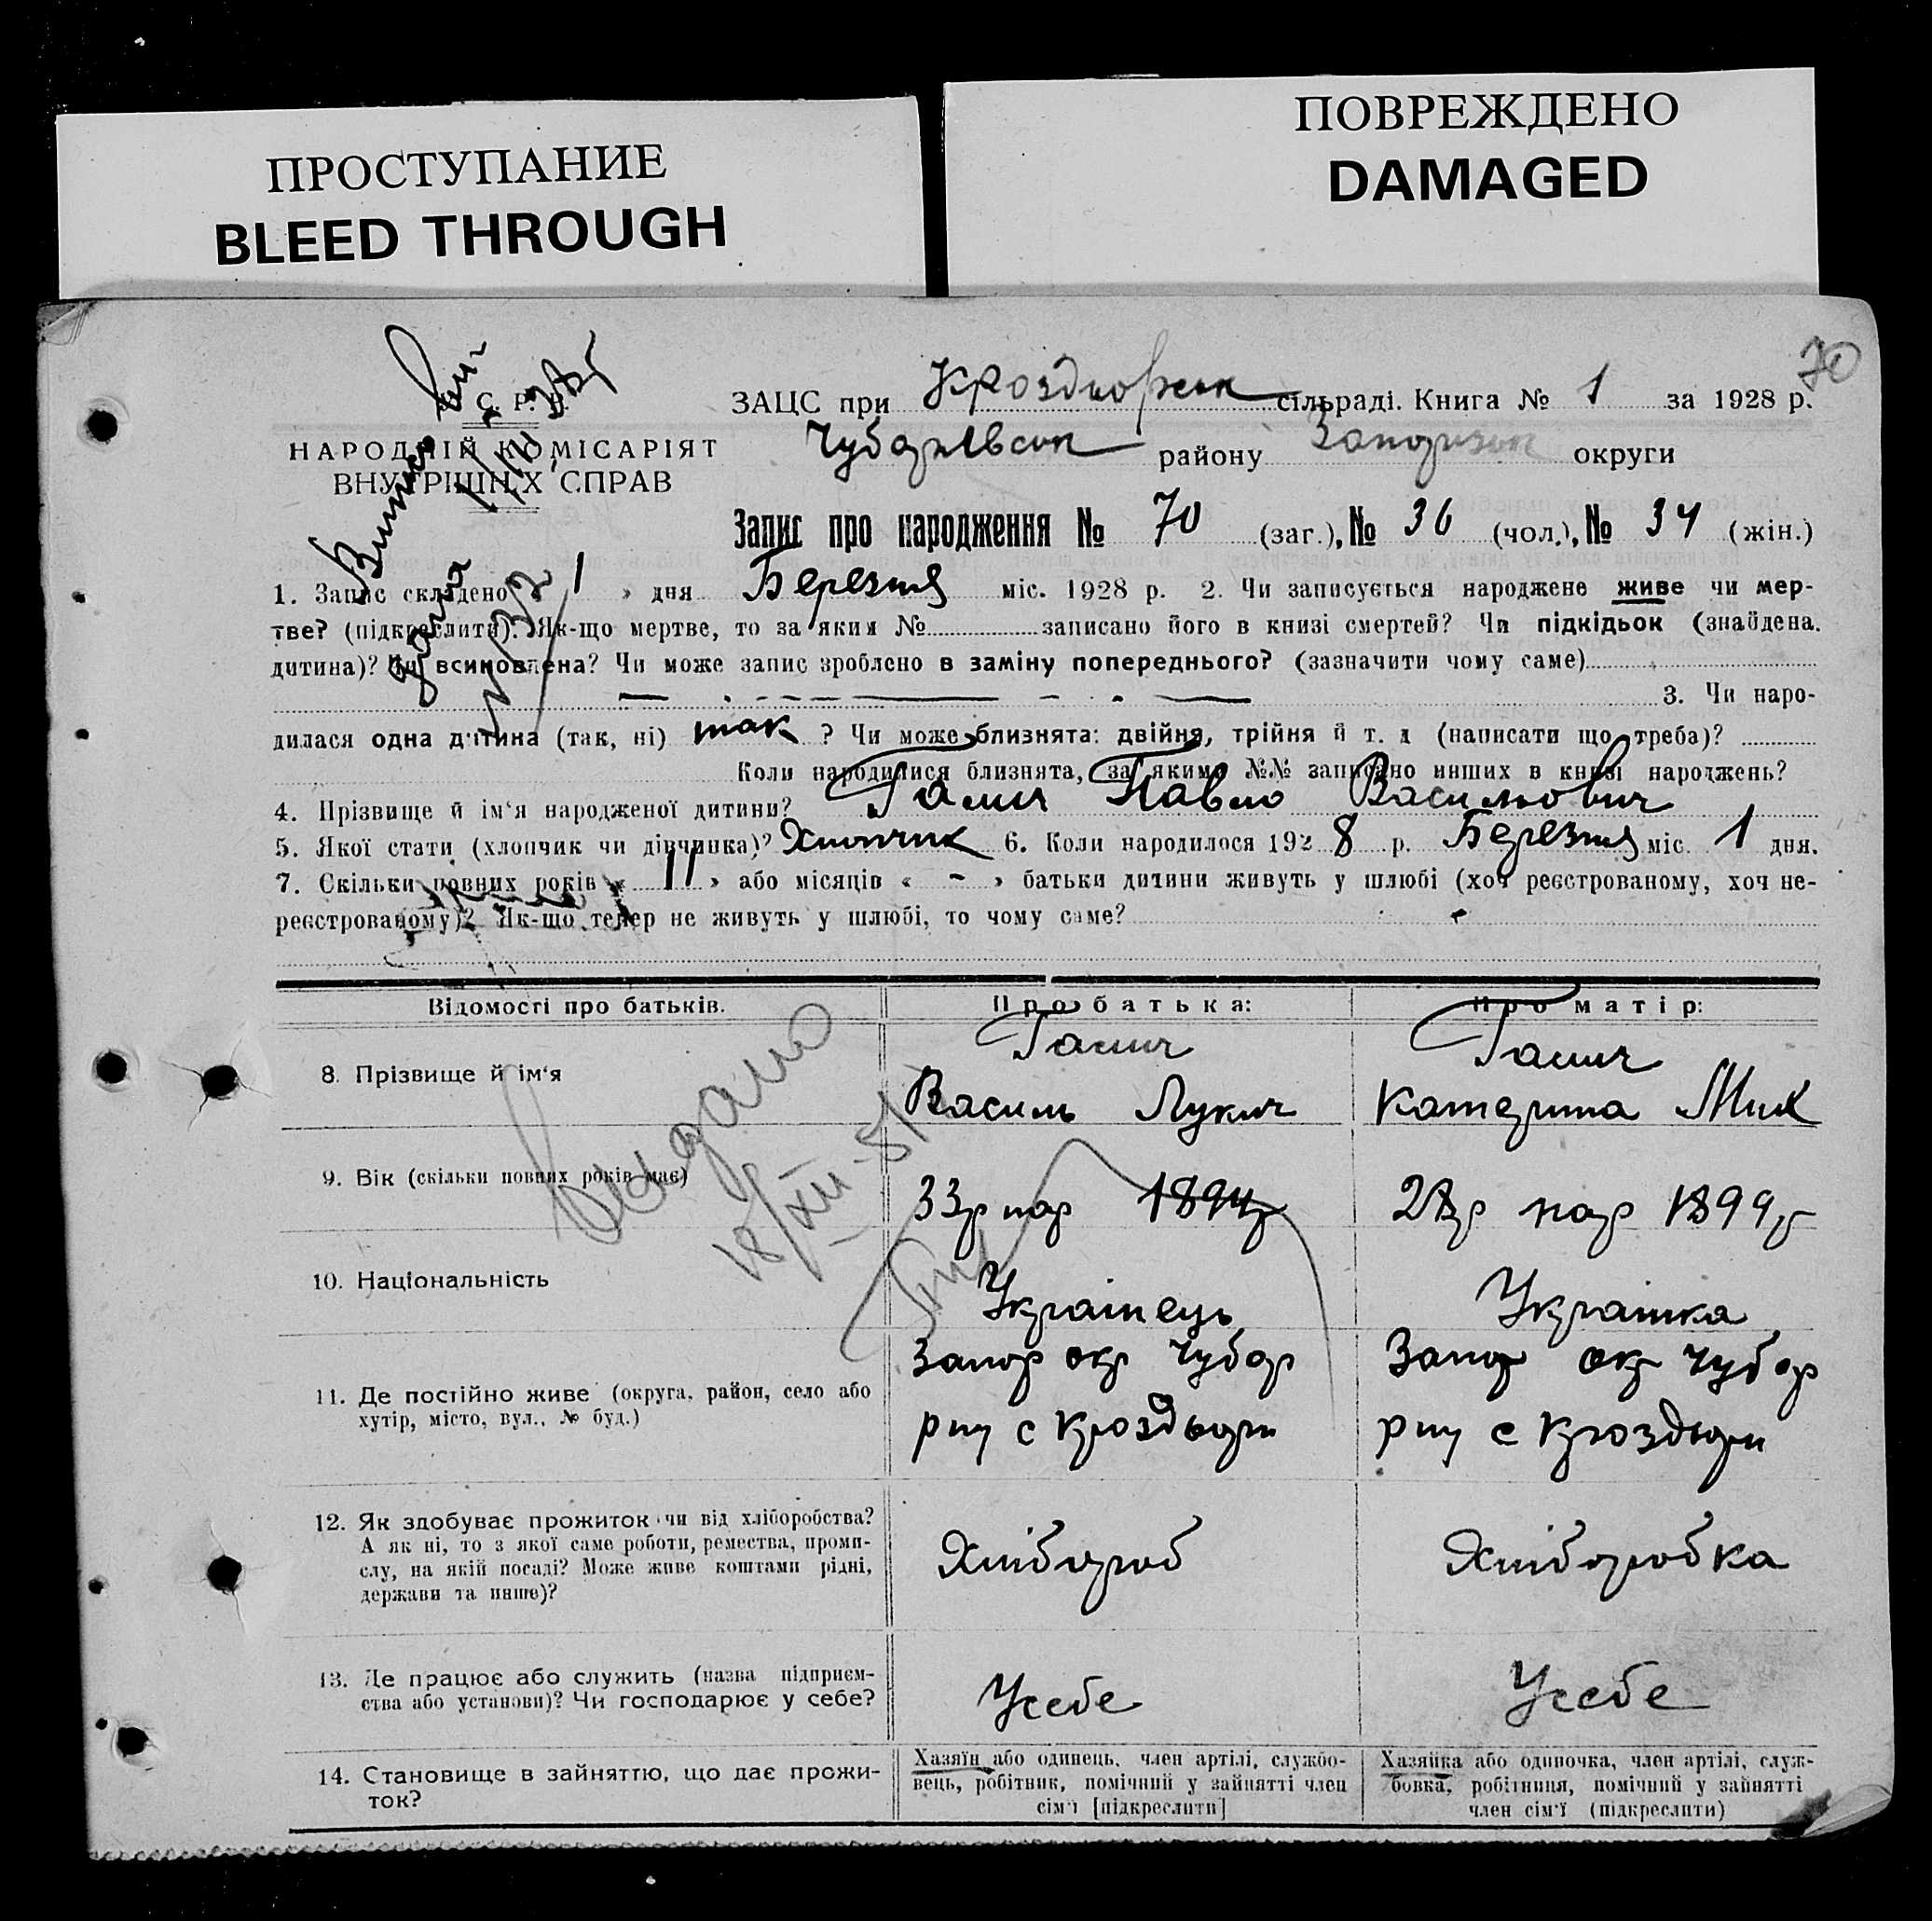 ПРОСТУПАНИЕ
BLEED THROUGH
ПОВРЕЖДЕНО
DAMAGED
70
У. С. Р. Р.
НАРОДНІЙ КОМІСАРІЯТ
ВНУТРІШНІХ СПРАВ
ЗАЦС при сільраді. Книга № 1 за 1928 р.
Чубарівськ району Запоризьк округи
Запис про народження № 70 (заг.), № 36 (чол.), № 34 (жін.)
1. Запис складено « 1 » дня Березня міс. 1928 р. 2. Чи записується народжене живе чи мер-
тве? (підкреслити). Як-що мертве, то за яким № записано його в книзі смертей? Чи підкідьок (знайдена
дитина)? Чи всиновлена? Чи може запис зроблено в заміну попереднього? (зазначити чому саме)
3. Чи наро-
дилася одна дитина (так, ні) так ? Чи може близнята: двійня, трійня й т. д (написати що треба)?
Коли народилися близнята, за якими №№ записано инших в книзі народжень?
4. Прізвище й ім'я народженої дитини? Галич Павло Васильович
5. Якої стати (хлопчик чи дівчинка)? Хлопчик 6. Коли народилося 1928 р. Березня міс. 1 дня.
7. Скільки повних років « 11 » або місяців « - » батьки дитини живуть у шлюбі (хоч реєстрованому, хоч не-
реєстрованому)? Як-що тепер не живуть у шлюбі, то чому саме?
Відомості про батьків. Про батька: Про матір:
8. Прізвище й ім'я
Галич
Василь Лукич
Галич
Катерина Мих
9. Вік (скільки повних років має)
33р нар 1894р
28р нар 1899р
10. Національність
Українець
Українка
11. Де постійно живе (округа, район, село або
хутір, місто, вул., № буд.)
Запор окр Чубар
рну с Кроздьори
Запор окр Чубар
рну с Кроздьори
12. Як здобуває прожиток чи від хліборобства?
А як ні, то з якої саме роботи, ремества, проми-
слу, на якій посаді? Може живе коштами рідні,
держави та инше)?
Хлібороб
Хліборобка
13. Де працює або служить (назва підприєм-
ства або установи)? Чи господарює у себе?
Усебе
Усебе
14. Становище в зайняттю, що дає прожи-
ток?
Хазяїн або одинець, член артілі, службо-
вець, робітник, помічний у зайнятті член
сім'ї [підкреслити]
Хазяйка або одиночка, член артілі, служ-
бовка, робітниця, помічний у зайнятті
член сім'ї (підкреслити)